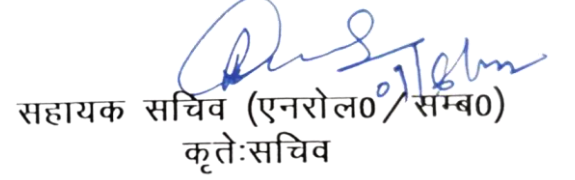 सहायक सचिव (एनरोल०/सम्ब०)
कृते:सचिव